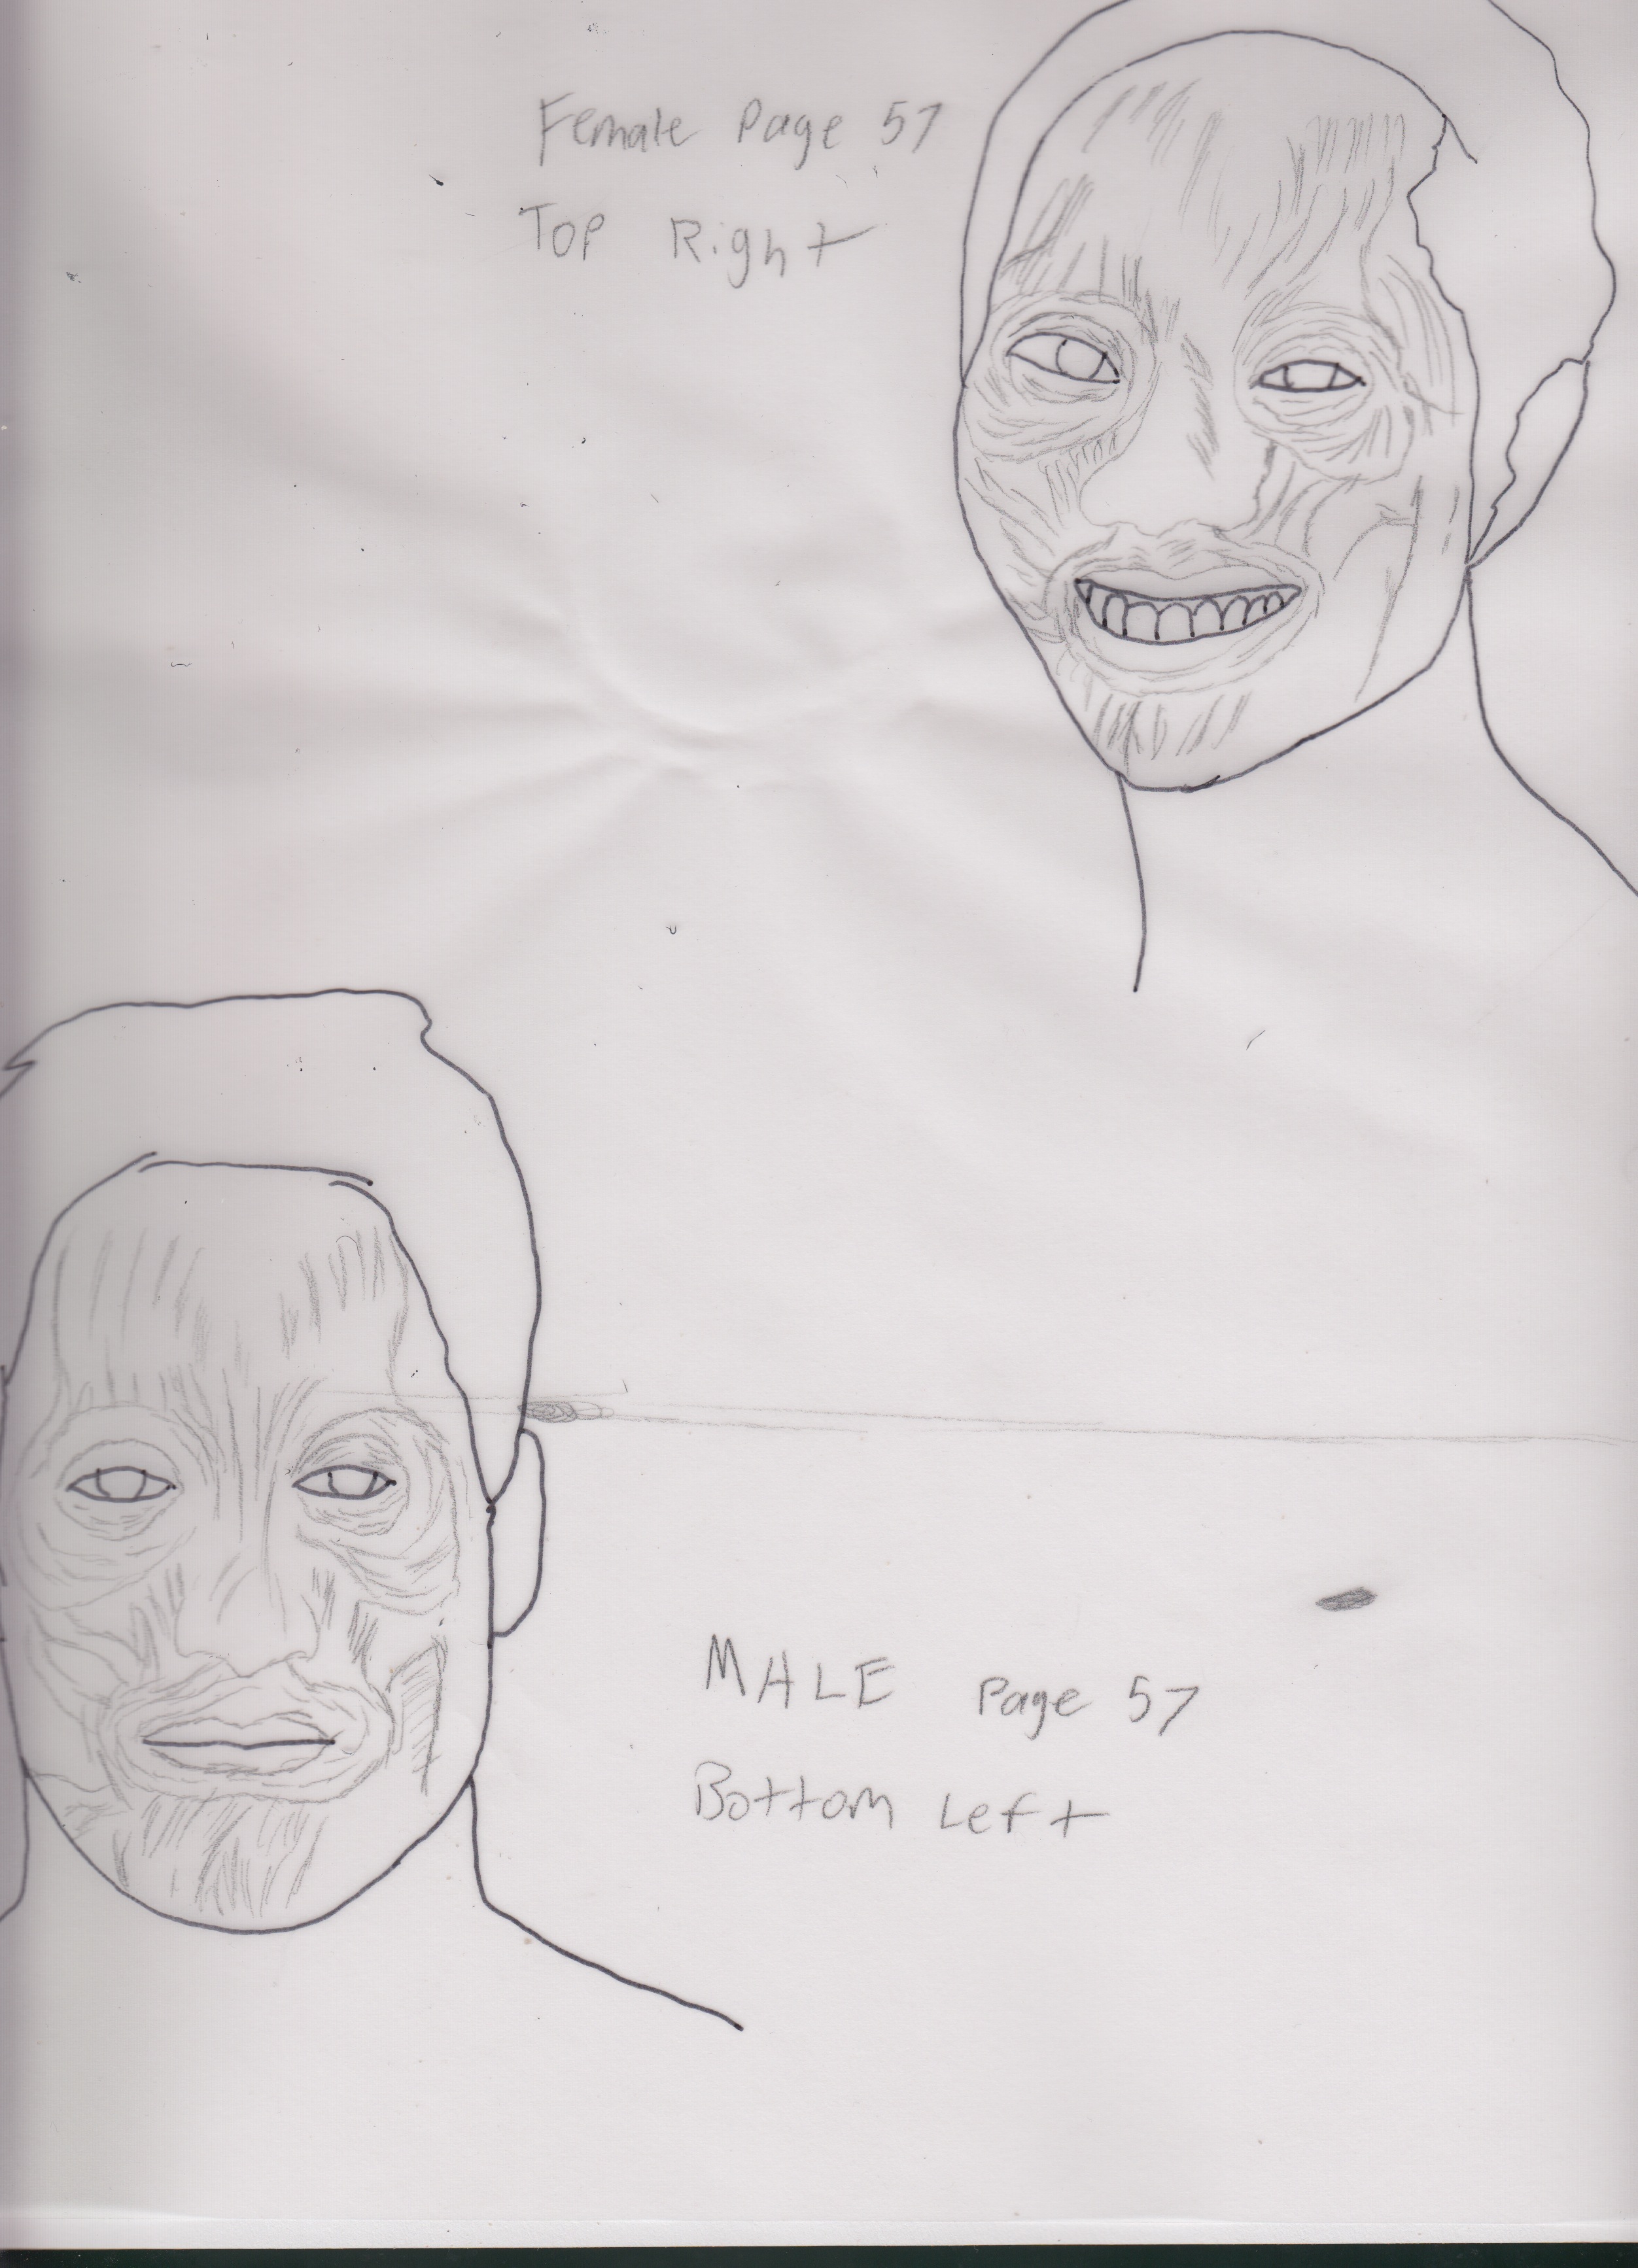 Female Page 57
Top Right
MALE Page 57
Bottom Left